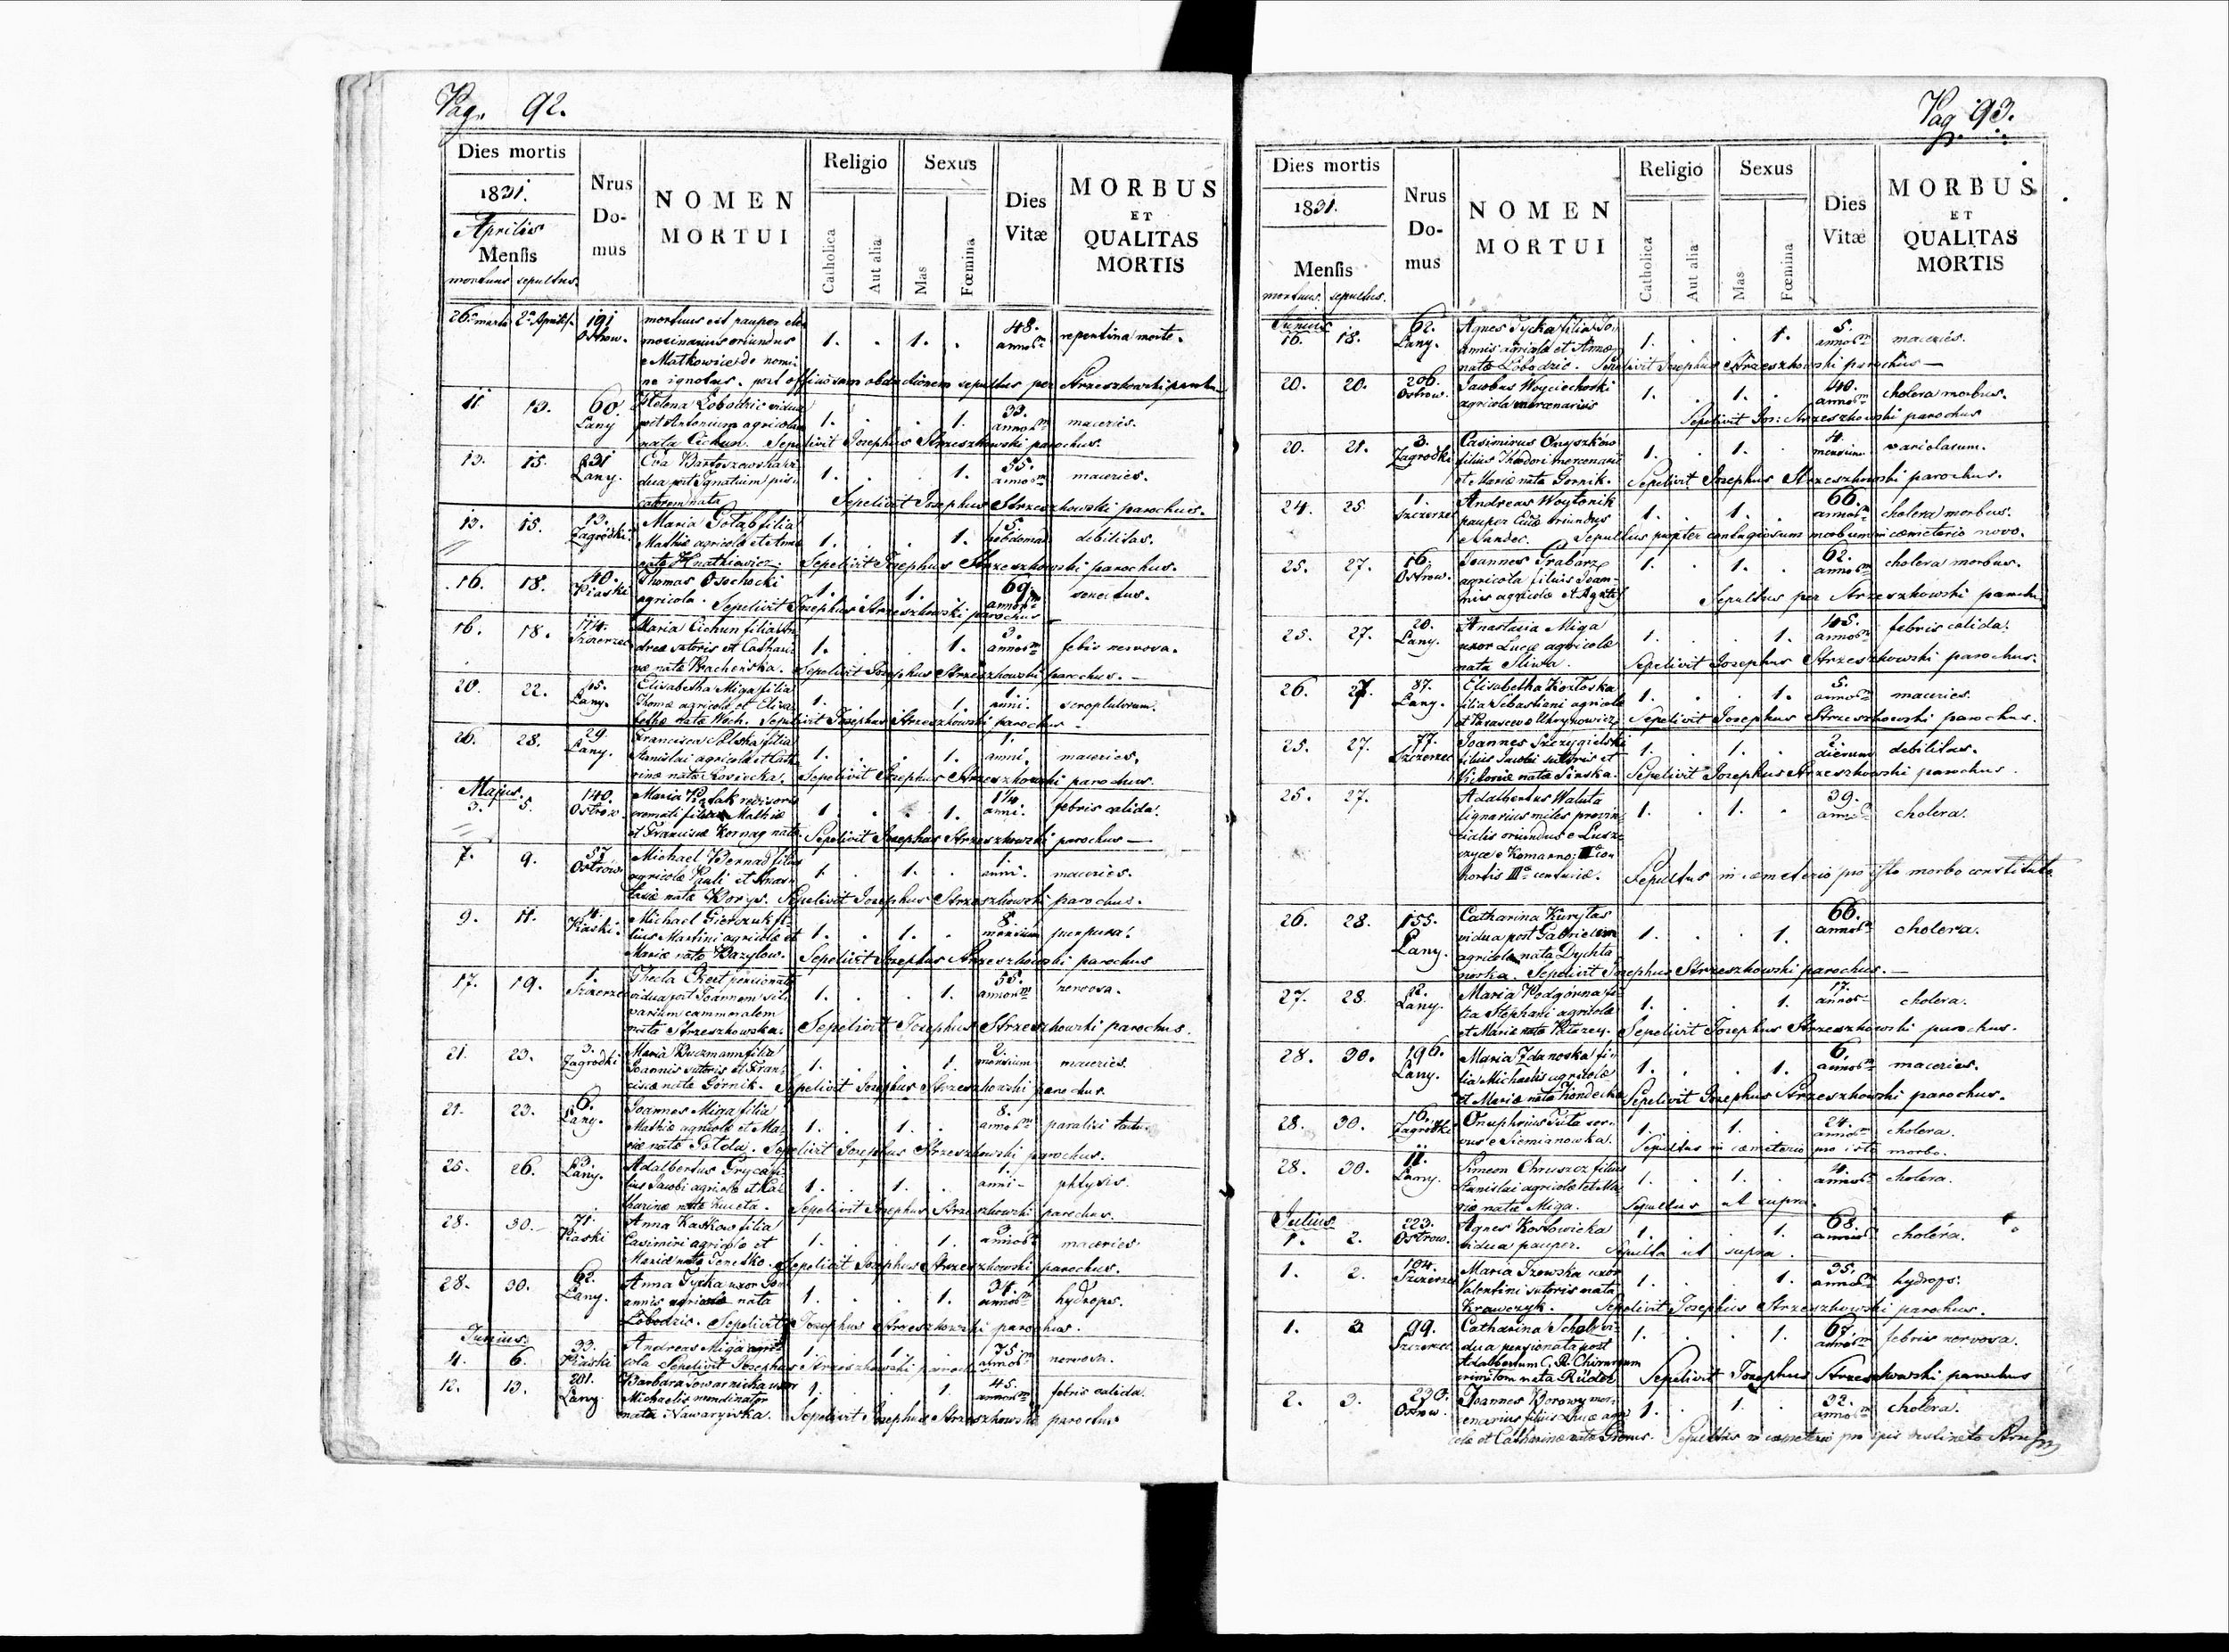 Pag. 92.
Dies mortis
1831.
Aprilis
Mensis
mortuus sepultus.
Nrus Domus
NOMEN MORTUI
Religio
Catholica
Aut alia
Sexus
Mas
Fœmina
Dies Vitæ
MORBUS ET QUALITAS MORTIS
26 Marti 2 Aprilis. 191 Ostrow. mortuus est pauper ele 1. . 1. . 48. annor repentina morte.
mosinarius oriundus
e Matkowice de nomi
ne ignotus. post officiosam obductionem sepultus per Strzeszkowski paroch
11. 13. 60. Lany Helena Lobodzic vidua 1. . . 1. 33. annorum macries.
post Antonium agricolam
nata Cichun. Sepelivit Josephus Strzeszkowski parochus.
13. 15. 231 Lany. Eva Bartoszewska vi 1. . . 1. 55. annorum macries.
dua post Ignatium pis
catorem nata Sepelivit Josephus Strzeszkowski parochus.
13. 15. 13. Zagrodki. Maria Gołąb filia 1. . . 1. 5. hebdomad debilitas.
Mathiæ agricolæ et Annæ
natæ Hnatkiewicz. Sepelivit Josephus Strzeszkowski parochus.
16. 18. 40. Piaski Thomas Osochocki 1. . 1. . 69. annorum senectus.
agricola. Sepelivit Josephus Strzeszkowski parochus
16. 18. 174. Szczerzec Maria Cichun filia An 1. . . 1. 3. annorum febis nervosa.
dreæ sutoris et Cathari
næ natæ Sepelivit Josephus Strzeszkowski parochus. —
20. 22. 15. Lany. Elisabetha Miga filia 1. . . 1. 1. anni. scrophulorum.
Thomæ agricolæ et Elisa
bethæ natæ Woch. Sepelivit Josephus Strzeszkowski parochus -
26. 28. 29. Lany. Francisca Polska filia 1. . . 1. 1. anni. macries.
Stanislai agricolæ et Cath
rinæ natæ Sepelivit Josephus Strzeszkowski parochus.
Majus.
3. 5. 140. Ostrow Maria revisoris 1. . . 1. 1 1/4. anni. febris calida.
cremati filia Mathiæ
et Franciscæ Kornag natæ Sepelivit Josephus Strzeszkowski parochus —
7. 9. 57 Ostrow Michael Bernad filius 1. . 1. . 1. anni. macries.
agricolæ Pauli et Anas
tasiæ natæ Borys. Sepelivit Josephus Strzeszkowski parochus.
9. 11. 4. Piaski. Michael Gierczuk fi 1. . 1. . 8. mensium purpura.
lius Martini agricolæ et
Mariæ natæ Bazylow. Sepelivit Josephus Strzeszkowski parochus
17. 19. 1. Szczerzec Thecla Ekert pensionata 1. . . 1. 55. annorum nervosa.
vidua post Joannem sili
varium cammeralem
nata Strzeszkowska. Sepelivit Josephus Strzeszkowski parochus.
21. 23. 3. Zagrodki Maria Buczmann filia 1. . . 1. 2. mensium macries.
Joannis sutoris et Fran
ciscæ natæ Górnik. Sepelivit Josephus Strzeszkowski parochus.
21. 23. 6. Lany. Joannes Miga filia 1. . 1. . 8. annorum paralisi tatus.
Mathiæ agricolæ et Ma
riæ natæ Gołda. Sepelivit Josephus Strzeszkowski parochus.
25. 26. 3. Lany. Adalbertus Grycay fi 1. . 1. . 1. anni - phtysis.
lius Jacobi agricolæ et Ca
tharinæ natæ Kuceta. Sepelivit Josephus Strzeszkowski parochus.
28. 30. 71. Piaski Anna Kaskow filia 1. . . 1. 3. annorum macries
Casimiri agricolæ et
Mariæ natæ Senetko. Sepelivit Josephus Strzeszkowski parochus.
28. 30. 62. Lany. Anna Tycka uxor Jo 1. . . 1. 34. annorum hydrops.
annis agricolæ nata
Lobodzic. Sepelivit Josephus Strzeszkowski parochus.
Junius.
4. 6. 33. Piaski Andreas Miga agri 1. . 1. . 75 annorum nervosa.
cola Sepelivit Josephus Strzeszkowski parochus
12. 13. 281. Lany Barbara Towarnicka uxor 1. . . 1. 45. annorum febris calida.
Michaelis mendinator
nata Nawaryiska. Sepelivit Josephus Strzeszkowski parochus
Pag. 93.
Dies mortis
1831.
Mensis
mortuus. sepultus.
Nrus Domus
NOMEN MORTUI
Religio
Catholica
Aut alia
Sexus
Mas
Fœmina
Dies Vitæ
MORBUS ET QUALITAS MORTIS
Junius
16. 18. 62. Lany. Agnes Tycka filia Jo 1. . . 1. 5. annorum macries.
annis agricolæ et Annæ
natæ Lobodzic. Sepelivit Josephus Strzeszkowski parochus —
20. 20. 206. Ostrow. Jacobus Woyciechoski 1. . 1. . 40. annorum cholera morbus.
agricola mercenarius
Sepelivit Jos: Strzeszkowski parochus
20. 21. 3. Zagrodki Casimirus Onyszków 1. . 1. . 4. mensium variolarum.
filius Theodori mercenarii
et Mariæ natæ Gornik. Sepelivit Josephus Strzeszkowski parochus.
24. 25 1. Szczerzec Andreas Woytonik 1. . 1. . 66. annorum cholera morbus.
pauper oriundus
e Sandec. Sepultus propter contagiosum morbum in cæmeterio novo.
25. 27. 16. Ostrow. Joannes Grabarz 1. . 1. . 62. annorum cholera morbus.
agricola filius Joan
nis agricolæ et Agatæ Sepultus per Strzeszkowski paroch
25. 27. 20. Lany. Anastasia Miga 1. . . 1. 45. annorum febris calida.
uxor Lucæ agricolæ
nata Sliwa. Sepelivit Josephus Strzeszkowski parochus.
26. 27. 87. Lany. Elisabetha Kozłoska 1. . . 1. 5. annor macries.
filia Sebastiani agricolæ
et Sepelivit Josephus Strzeszkowski parochus.
25. 27. 77. Szczerzec Joannes Szczygielski 1. . 1. . 2. dierum debilitas.
filius Jacobi sutoris et
Victoriæ natæ Sinska. Sepelivit Josephus Strzeszkowski parochus.
25. 27. Adalbertus Waluta 1. . 1. . 39. annor cholera.
lignarius miles provin
cialis oriundus e
e Komarno;
hortis III centuriæ. Sepultus in cæmeterio pro isto morbo constituto
26. 28. 155. Lany. Catharina Kurytas 1. . . 1. 66. annor cholera.
vidua post Gabrielem
agricolam nata Dychta
norka. Sepelivit Josephus Strzeszkowski parochus. —
27. 28. 12. Lany. Maria Podgórna fi 1. . . 1. 17. annor cholera.
lia Stephani agricolæ
et Mariæ natæ Sepelivit Josephus Strzeszkowski parochus.
28. 30. 196. Lany. Maria Zdanoska fi 1. . . 1. 6. annorum macries.
lia Michaelis agricolæ
et Mariæ natæ Sepelivit Josephus Strzeszkowski parochus.
28. 30. 16. Zagrodki Onuphrius Suta ser 1. . 1. . 24. annor cholera.
vus e Siemianowka. Sepultus in cæmeterio pro isto morbo.
28. 30. 11. Lany. Simeon Chruszcz filius 1. . 1. . 4. annor cholera.
Stanislai agricolæ et Ma
riæ natæ Miga. Sepultus ut supra.
Julius
1. 2. 223. Ostrow. Agnes Kosłowicka 1. . . 1. 68. annor cholera.
vidua pauper. Sepulta ut supra.
1. 2. 104. Szczerzec Maria Izowska uxor 1. . . 1. 35. annor hydrops.
Valentini sutoris nata
Krawczyk. Sepelivit Josephus Strzeszkowski parochus.
1. 3. 99. Szczerzec Catharina Scholz vi 1. . . 1. 67. annor febris nervosa.
dua pensionata post
Adalbertum C. R. Chirurgum
nata Rüdel Sepelivit Josephus Strzeszkowski parochus
2. 3. 230. Ostrow. Joannes Borowy mer 1. . 1. . 32. annorum cholera.
cenarius filius Lucæ agri
colæ et Catharinæ natæ Sepultus in cæmeterio pro destinato